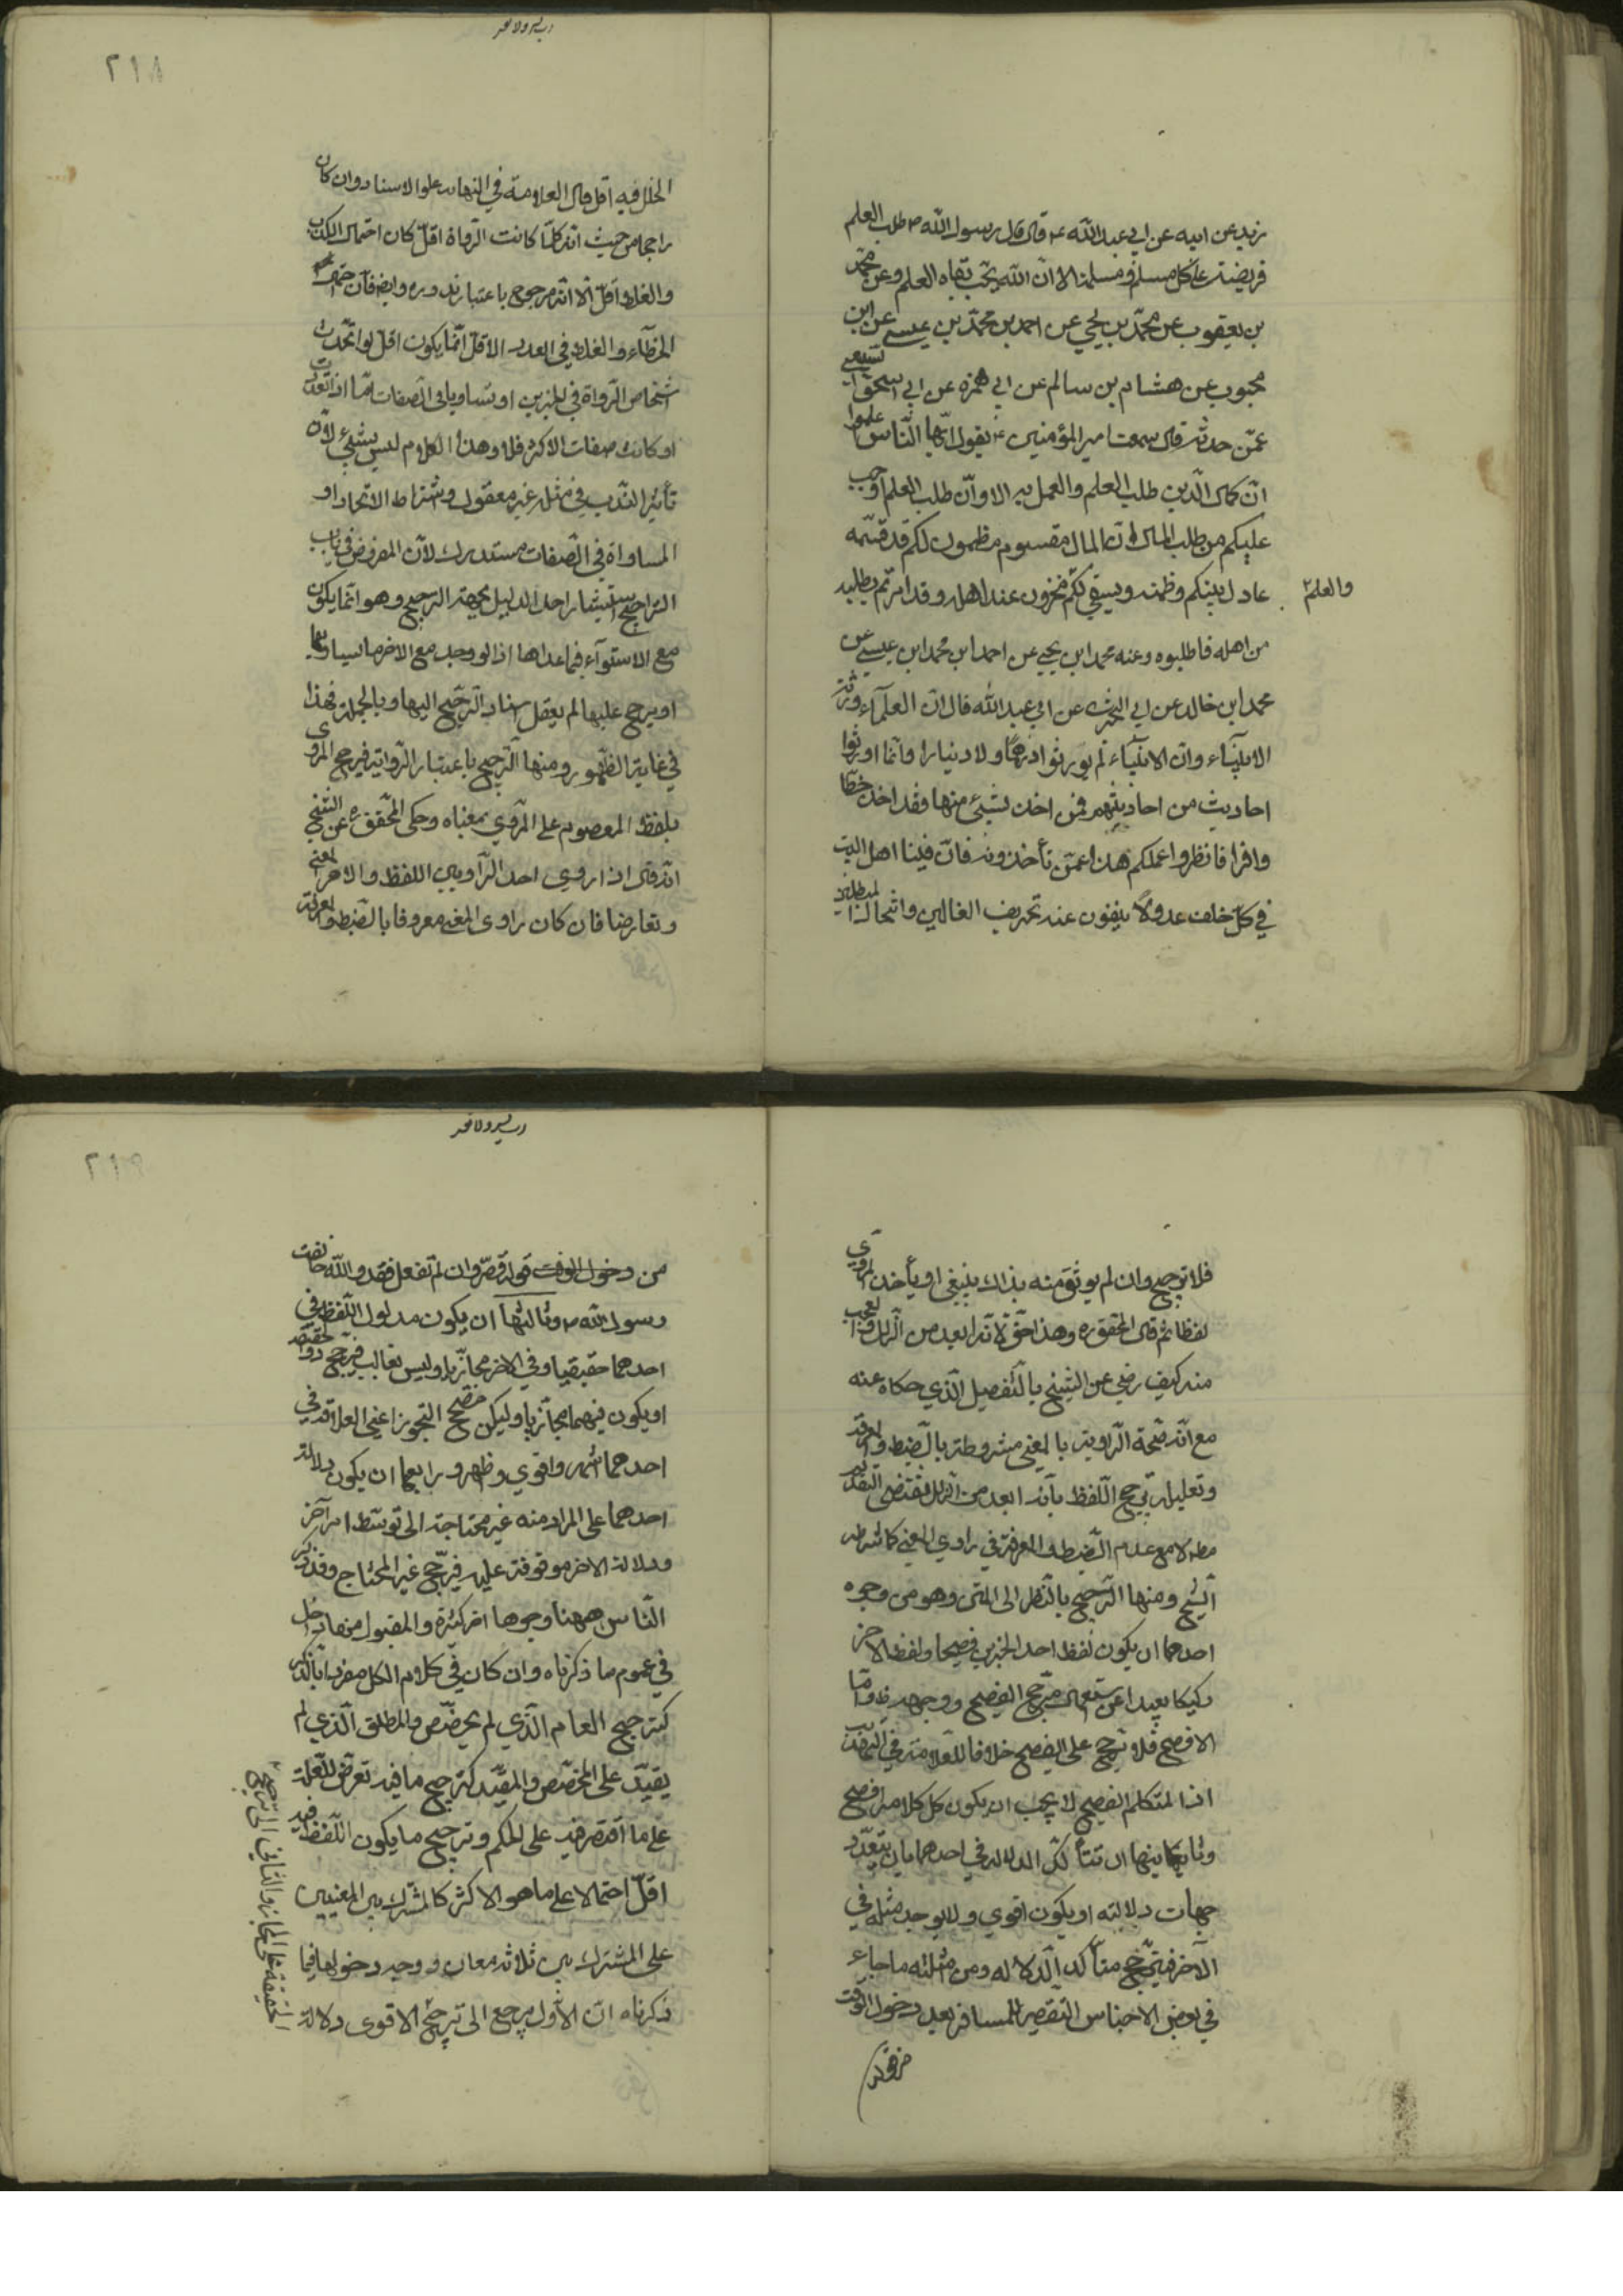 زيد عن ابيه عن ابي عبد الله ع قال قال رسول الله ص طلب العلم
فريضة على كل مسلم و مسلمة الا ان الله يحب بغاة العلم وعن محمد
بن يعقوب عن محمد بن يحيي عن احمد بن محمد بن عيسى عن ابن
محبوب عن هشام بن سالم عن ابي حمزه عن ابي اسحق السبيعي
عمن حدثه قال سمعت امير المؤمنين ع يقول ايها الناس اعلموا
ان كمال الدين طلب العلم والعمل به الا وان طلب العلم اوجب
عليكم من طلب المال ان المال مقسوم مضمون لكم قد قسمه
عادل بينكم وضمنه وسيفي لكم والعلم مخزون عند اهله وقد امرتم بطلبه
من اهله فاطلبوه وعنه محمد ابن يحيي عن احمد ابن محمد ابن عيسى عن
محمد ابن خالد عن ابي البختري عن ابي عبد الله قال ان العلمآء ورثة
الانبياء وان الانبيآء لم يورثوا درهما ولا دينارا وانما اورثوا
احاديث من احاديثهم فمن اخذ بشيئ منها فقد اخذ حظا
وافرا فانظروا علمكم هذا عمن تأخذونه فان فينا اهل البيت
في كل خلف عدولا ينفون عنه تحريف الغالين وانتحال المبطلين
٢١٨
الخلل فيه اقل قال العلامة في النهاية علو الاسناد وان كان
راجحا من حيث انه كلما كانت الرواة اقل كان احتمال الكذب
والغلط اقل الا انه مرجوح باعتبار ندوره وايضا فان احتمال
الخطآء والغلط في العدد الاقل انما يكون اقل لو اتحدت
اشخاص الرواة في الخبرين او تساويا في الصفات اما اذا تعددت
او كانت صفات الاكثر فلا وهذا الكلام ليس بشيئ لان
تأثير الندرة في مثله غير معقول واشتراط الاتحاد او
المساواة في الصفات مستدرك لان المفروض في باب
التراجيح استيثار احد الدليلين بجهة الترجيح وهو انما يكون
مع الاستوآء فيما عداها اذ لو وجد مع الاخر ما يساويها
او يرجح عليها لم يعقل اسناد الترجيح اليها وبالجملة فهذا
في غاية الظهور ومنها الترجيح باعتبار الرواية فيرجح المروى
بلفظ المعصوم على المروي بمعناه وحكى المحقق ره عن الشيخ
انه قال اذا روي احد الراويين اللفظ والاخر المعنى
وتعارضا فان كان راوى المعنى معروفا بالضبط والمعرفة
فلا ترجيح وان لم يوثق منه بذلك ينبغي ان يأخذ المروي
لفظا ثم قال المحقق ره وهذا حق لانه ابعد من الزلل والعجب
منه كيف رضي عن الشيخ بالتفصيل الذي حكاه عنه
مع ان صحة الرواية بالمعنى مشروطة بالضبط والمعرفة
وتعليله ترجيح اللفظ بانه ابعد من الزلل يقتضى التقديم
مطلا مع عدم الضبط والمعرفة في راوي المعنى كما شرطه
الشيخ ومنها الترجيح بالنظر الى المتن وهو من وجوه
احدها ان يكون لفظ احد الخبرين فصيحا ولفظ الاخر
ركيكا بعيدا عن الاستعمال فيرجح الفصيح ووجهه ظ واما
الافصح فلا يرجح على الفصيح خلافا للعلامة في التهذيب
اذ المتكلم الفصيح لا يجب ان يكون كل كلامه افصح
وثانيها ان تتأكد الدلالة في احدهما بان يتعدد
جهات دلالته او يكون اقوي ولا يوجد مثله في
الاخر فيرجح متأكد الدلاله ومن امثلته ما جاء
في بعض الاخباس التقصير للمسافر بعد دخول الوقت
٢١٩
من دخول الوقت قوله قصر وان لم تفعل فقد والله خالفت
رسول الله ص وثالثها ان يكون مدلول اللفظ في
احدهما حقيقيا وفي الاخر مجازيا وليس بغالب فيرجح ذو الحقيقة
او يكون فيهما مجازيا ولكن مصحح التجوز اعني العلاقة في
احدهما اشهر واقوي واظهر و رابعها ان يكون دلالة
احدهما على المراد منه غير محتاجة الى توسط امر آخر
ودلالة الاخر موقوفة عليه فيرجح غير المحتاج وقد ذكر
الناس ههنا وجوها اخر كثيرة والمقبول منها داخل
في عموم ما ذكرناه وان كان في كلام الكل مفردا بالذكر
كترجيح العام الذي لم يخصص والمطلق الذي لم
يقيد على المخصص والمقيد كترجيح ما فيه تعرض للعلة
على ما اقتصر فيه على الحكم وترجيح ما يكون اللفظ فيه
اقل احتمالا على ما هو الاكثر كالمشترك بين المعنيين
على المشترك بين ثلاثة معان و وجه دخولها فيما
ذكرناه ان الاول يرجع الى ترجيح الاقوى دلالة
والثاني الى ترجيح الحقيقة على المجاز